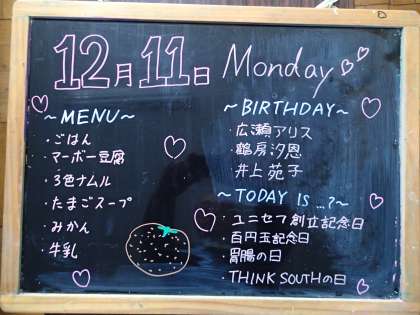 12月11日 Monday
~MENU~
・ごはん
・マーボー豆腐
・3色ナムル
・たまごスープ
・みかん
・牛乳
~BIRTHDAY~
・広瀬アリス
・鶴房汐恩
・井上苑子
~TODAY IS ...?~
・ユニセフ創立記念日
・百円玉記念日
・胃腸の日
・THINK SOUTHの日